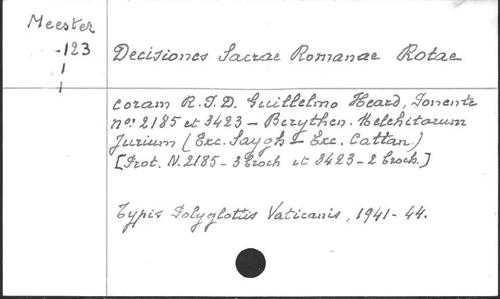 Meester
-123
Decisiones Sacrae Romanae Rotae
coram R.P.D. Guillelmo Heard, Ponente
nos: 2185 et 3423 - Berythen. Melchitarum
Jurium (Exc. Saygh - Exc. Cattan.)
[Prot. N. 2185 - 3 Broch et 3423 - 2 Broch.]
Typis Polyglottis Vaticanis, 1941-44.